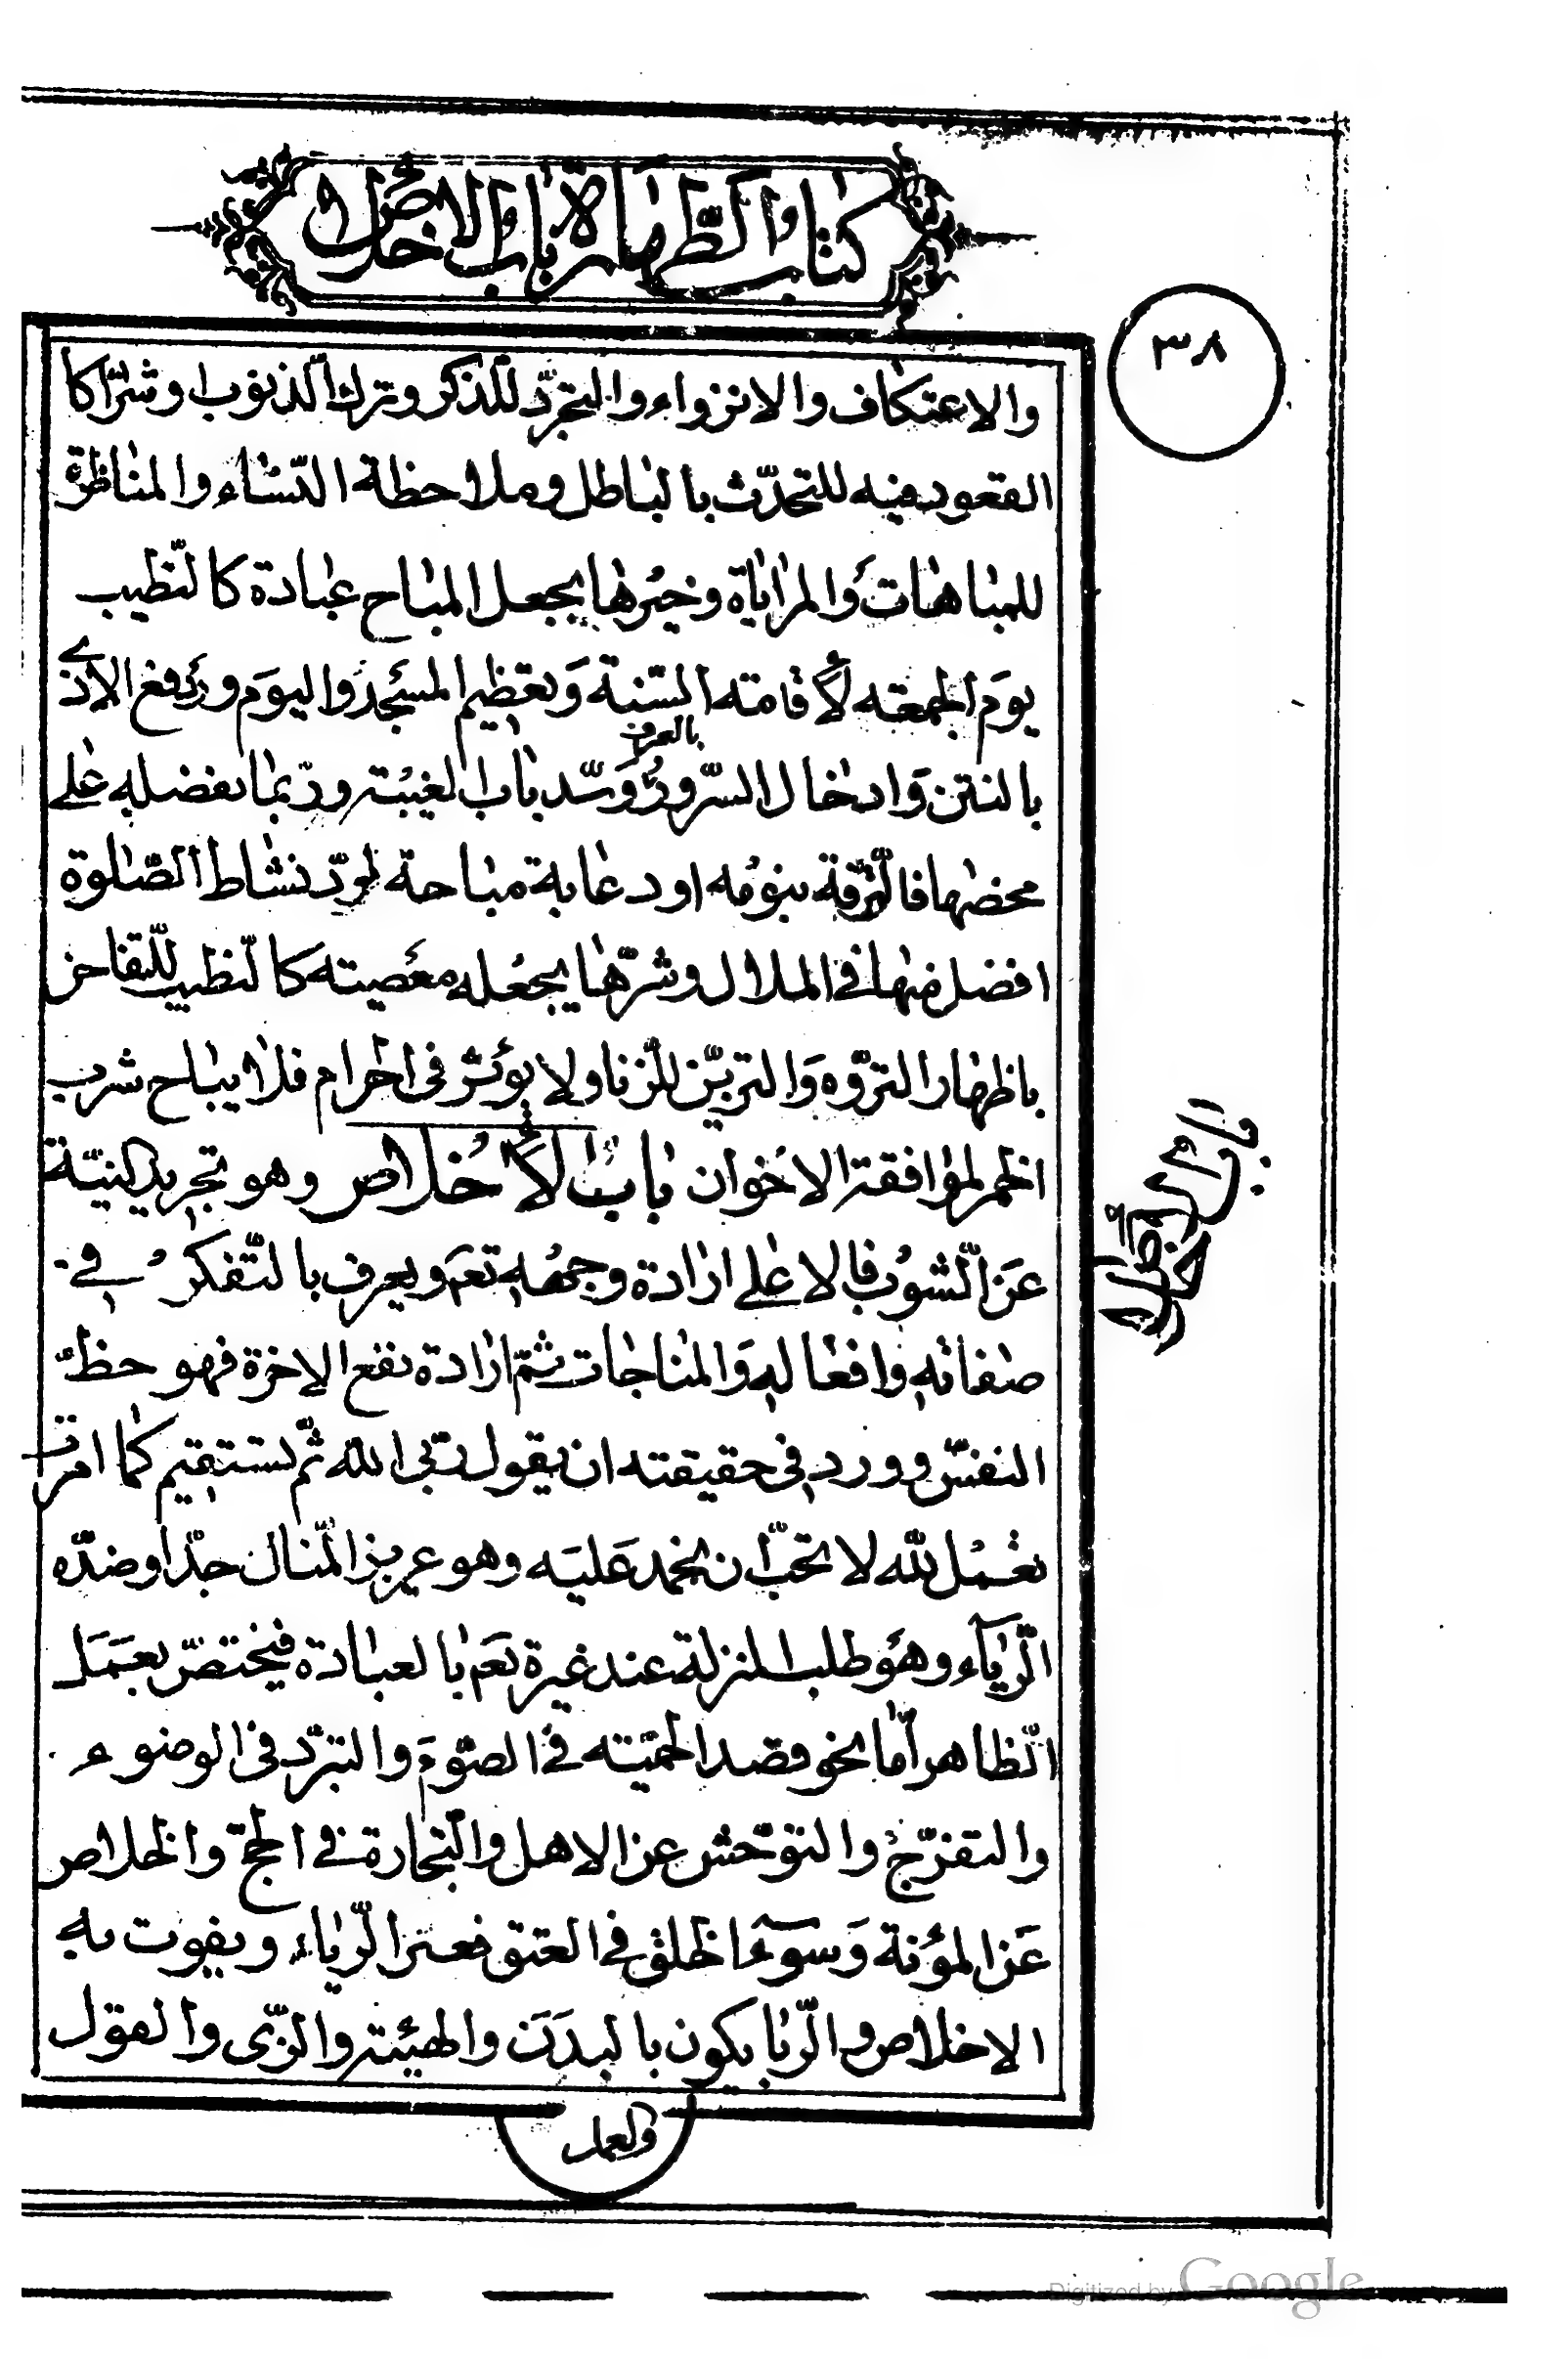 كتاب الطهارة باب الاخلاص
٣٨
والاعتكاف والانزواء والتجرّد للذكر وترك الذنوب وشرّا كا
القعود فيه للتحدّث بالباطل وملاحظة النّساء والمناظرة
للمباهات والمراياة وخيرها يجعل المباح عبادة كالتّطيب
يوم الجمعة لاقامته السّنة وتعظيم المسجد واليوم ودفع الاذى
بالنتن وادخال السّرور وسّد باب الغيبة وربّما يفضله على
بالعرف
محضها فالتّرفة بنومه او دعابة مباحة لردّ نشاط الصّلوة
افضل منها في الملال وشرّها يجعله معصيته كالتّطيب للتّفاخر
باظهار التروّه والتزيّن للزنا ولا يؤثر فى الحرام فلا يباح شرب
الخمر لموافقة الاخوان باب الاخلاص وهو تجريد النيّة
عن الشّوب فالاعلى ارادة وجهه تعم ويعرف بالتّفكر في
صفاته وافعاله والمناجات ثمّ ارادة نفع الاخرة فهو حظّ
النفس وورد في حقيقته ان يقول ربى الله ثمّ تستقيم كما امرت
تعمل للّه لا تحبّ ان تحمد عليه وهو عزيز المنال جدّا وضدّه
الرّياء وهو طلب المنزلة عند غيره تعم بالعبادة فيختصّ بعمل
الظّاهر أمّا نحو قصد الحميّته في الصّوم والتبرّد فى الوضوء
والتفرّج والتوّحش عن الاهل والتّجارة في الحج والخلاص
عن المؤنة وسوء الخلق في العتق فغير الرّياء ويفوت به
الاخلاص والرّيا يكون بالبدن والهيئة والزّى والقول
والعمل
باب الاخلاص
Digitized by Google